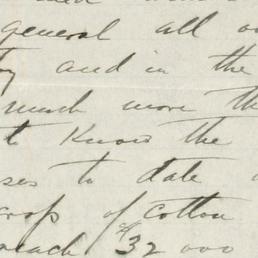 general all
and in the
much more
Know the
to date
crop of Cotton
reach $32 000